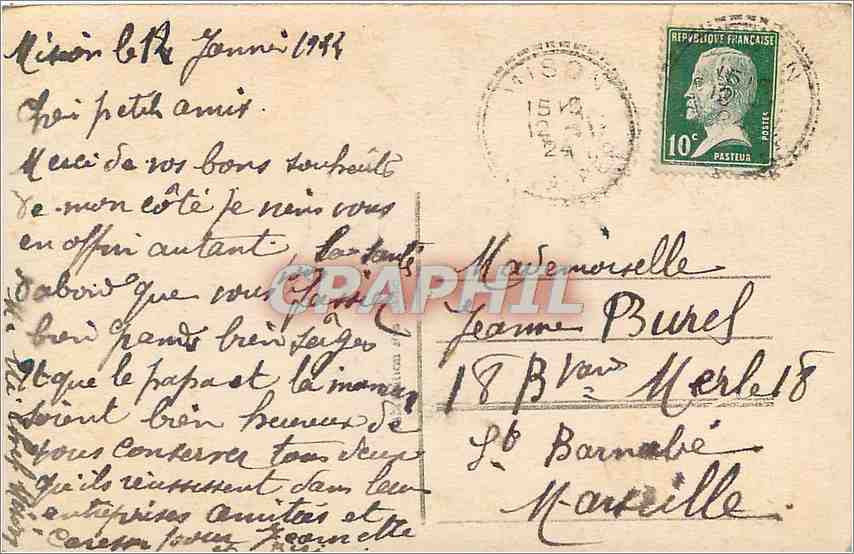 Mison le 12 Janvier 1924
petits amis.
Merci de vos bons souhaits
de mon côté je viens vous
en offrir autant. La santé
d'abord que vous
bien grands bien sages
et que le papa et la maman
soient bien heureux de
vous conserver tous deux
qu'ils réussissent dans leur
entreprises amitiés et
pour Jeannette
MISON
15
24
REPUBLIQUE FRANÇAISE
10c
POSTES
PASTEUR
CPAPHIL
Mademoiselle
Jeanne Burel
18 Bvard Merle 18
St Barnabé
Marseille.